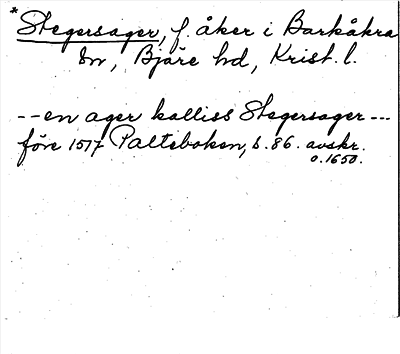 *Stegersager, f. åker i Barkåkra
sn, Bjäre hd, Krist. l.
--en ager kalliss Stegersager---
före 1517 Palteboken, s. 86. avskr.
o. 1650.